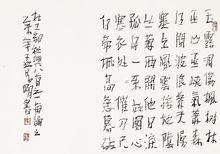 玉露凋傷楓樹林
巫山巫峽氣蕭森
江間波浪兼天湧
塞上風雲接地陰
叢菊兩開他日淚
孤舟一繫故園心
寒衣處處催刀尺
白帝城高急暮砧
杜工部秋興八首之一
書